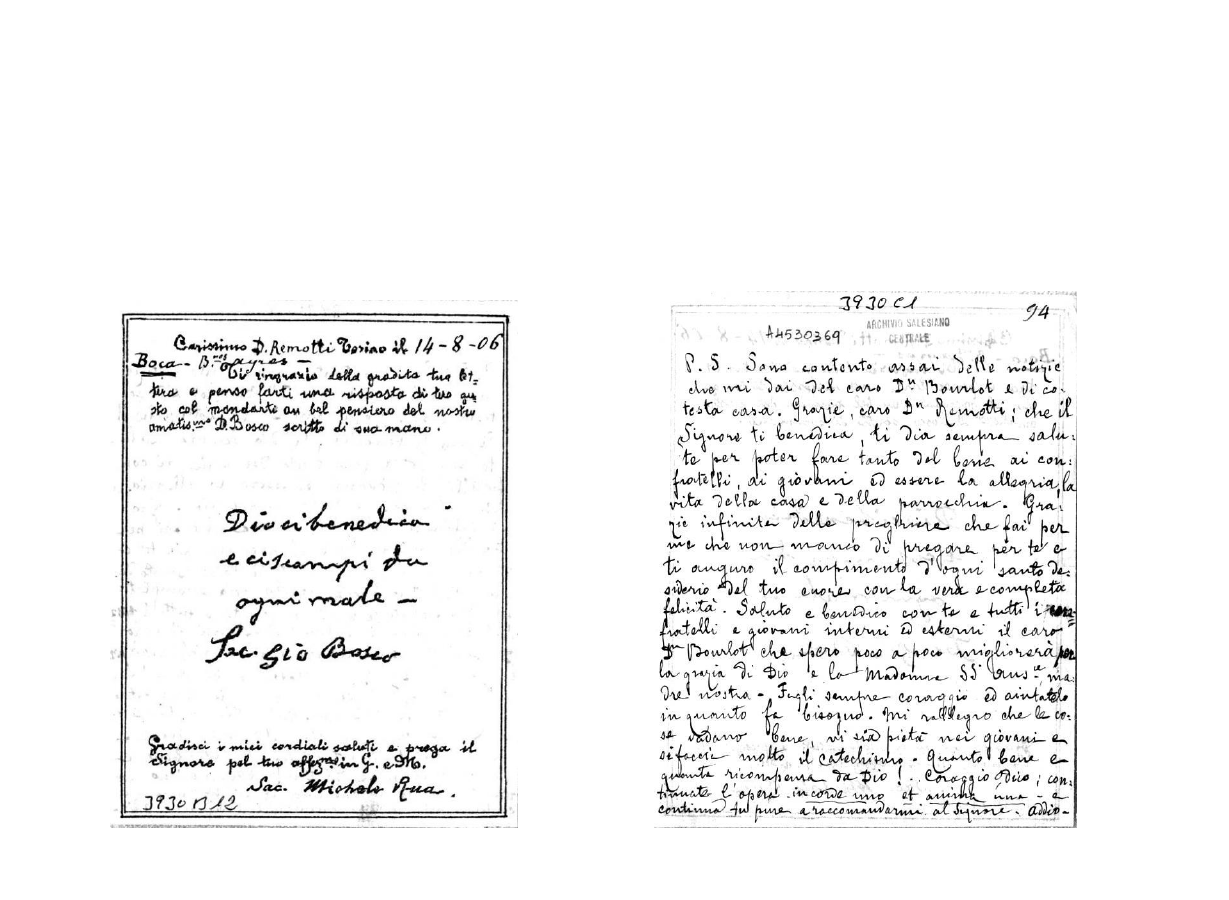 Carissimo D. Remotti Torino il 14-8-06
Boca - B.nes Ayres -
Ti ringrazio della gradita tua let=
tera e penso farti una risposta di tuo gu
sto col mandarti un bel pensiero del nostro
amatis.mo D. Bosco scritto di sua mano.
Dio ci benedica
e ci scampi da
ogni male -
Sac. Gio Bosco
Gradisci i miei cordiali saluti e prega il
Signore pel tuo affez.mo in G. e M.
Sac. Michele Rua.
3930 B12
3930 C1
94
A4530369
ARCHIVIO SALESIANO
CENTRALE
P. S. Sono contento assai delle notizie
che mi dai del caro Dn Bourlot e di co-
testa casa. Grazie, caro Dn Remotti; che il
Signore ti benedica, ti dia sempre salu:
te per poter fare tanto del bene ai con:
fratelli, ai giovani ed essere la allegria, la
vita della casa e della parrocchia. Gra:
zie infinite delle preghiere che fai per
me che non manco di pregare per te e
ti auguro il compimento d'ogni santo de:
siderio del tuo cuore con la vera e completa
felicità. Saluto e benedico con te e tutti i con=
fratelli e giovani interni ed esterni il caro
Dn Bourlot che spero poco a poco migliorerà per
la grazia di Dio e la Madonna SS Aus.e ma
dre nostra - Fagli sempre coraggio ed aiutatelo
in quanto fa bisogno. Mi rallegro che le co:
se vadano bene, vi sia pietà nei giovani e
si faccia molto il catechismo. Quanto bene e
quanta ricompensa da Dio! Coraggio ; con:
tinuate l'opera in corde uno et anima una - e
continua tu pure a raccomandarmi al Signore. Addio-